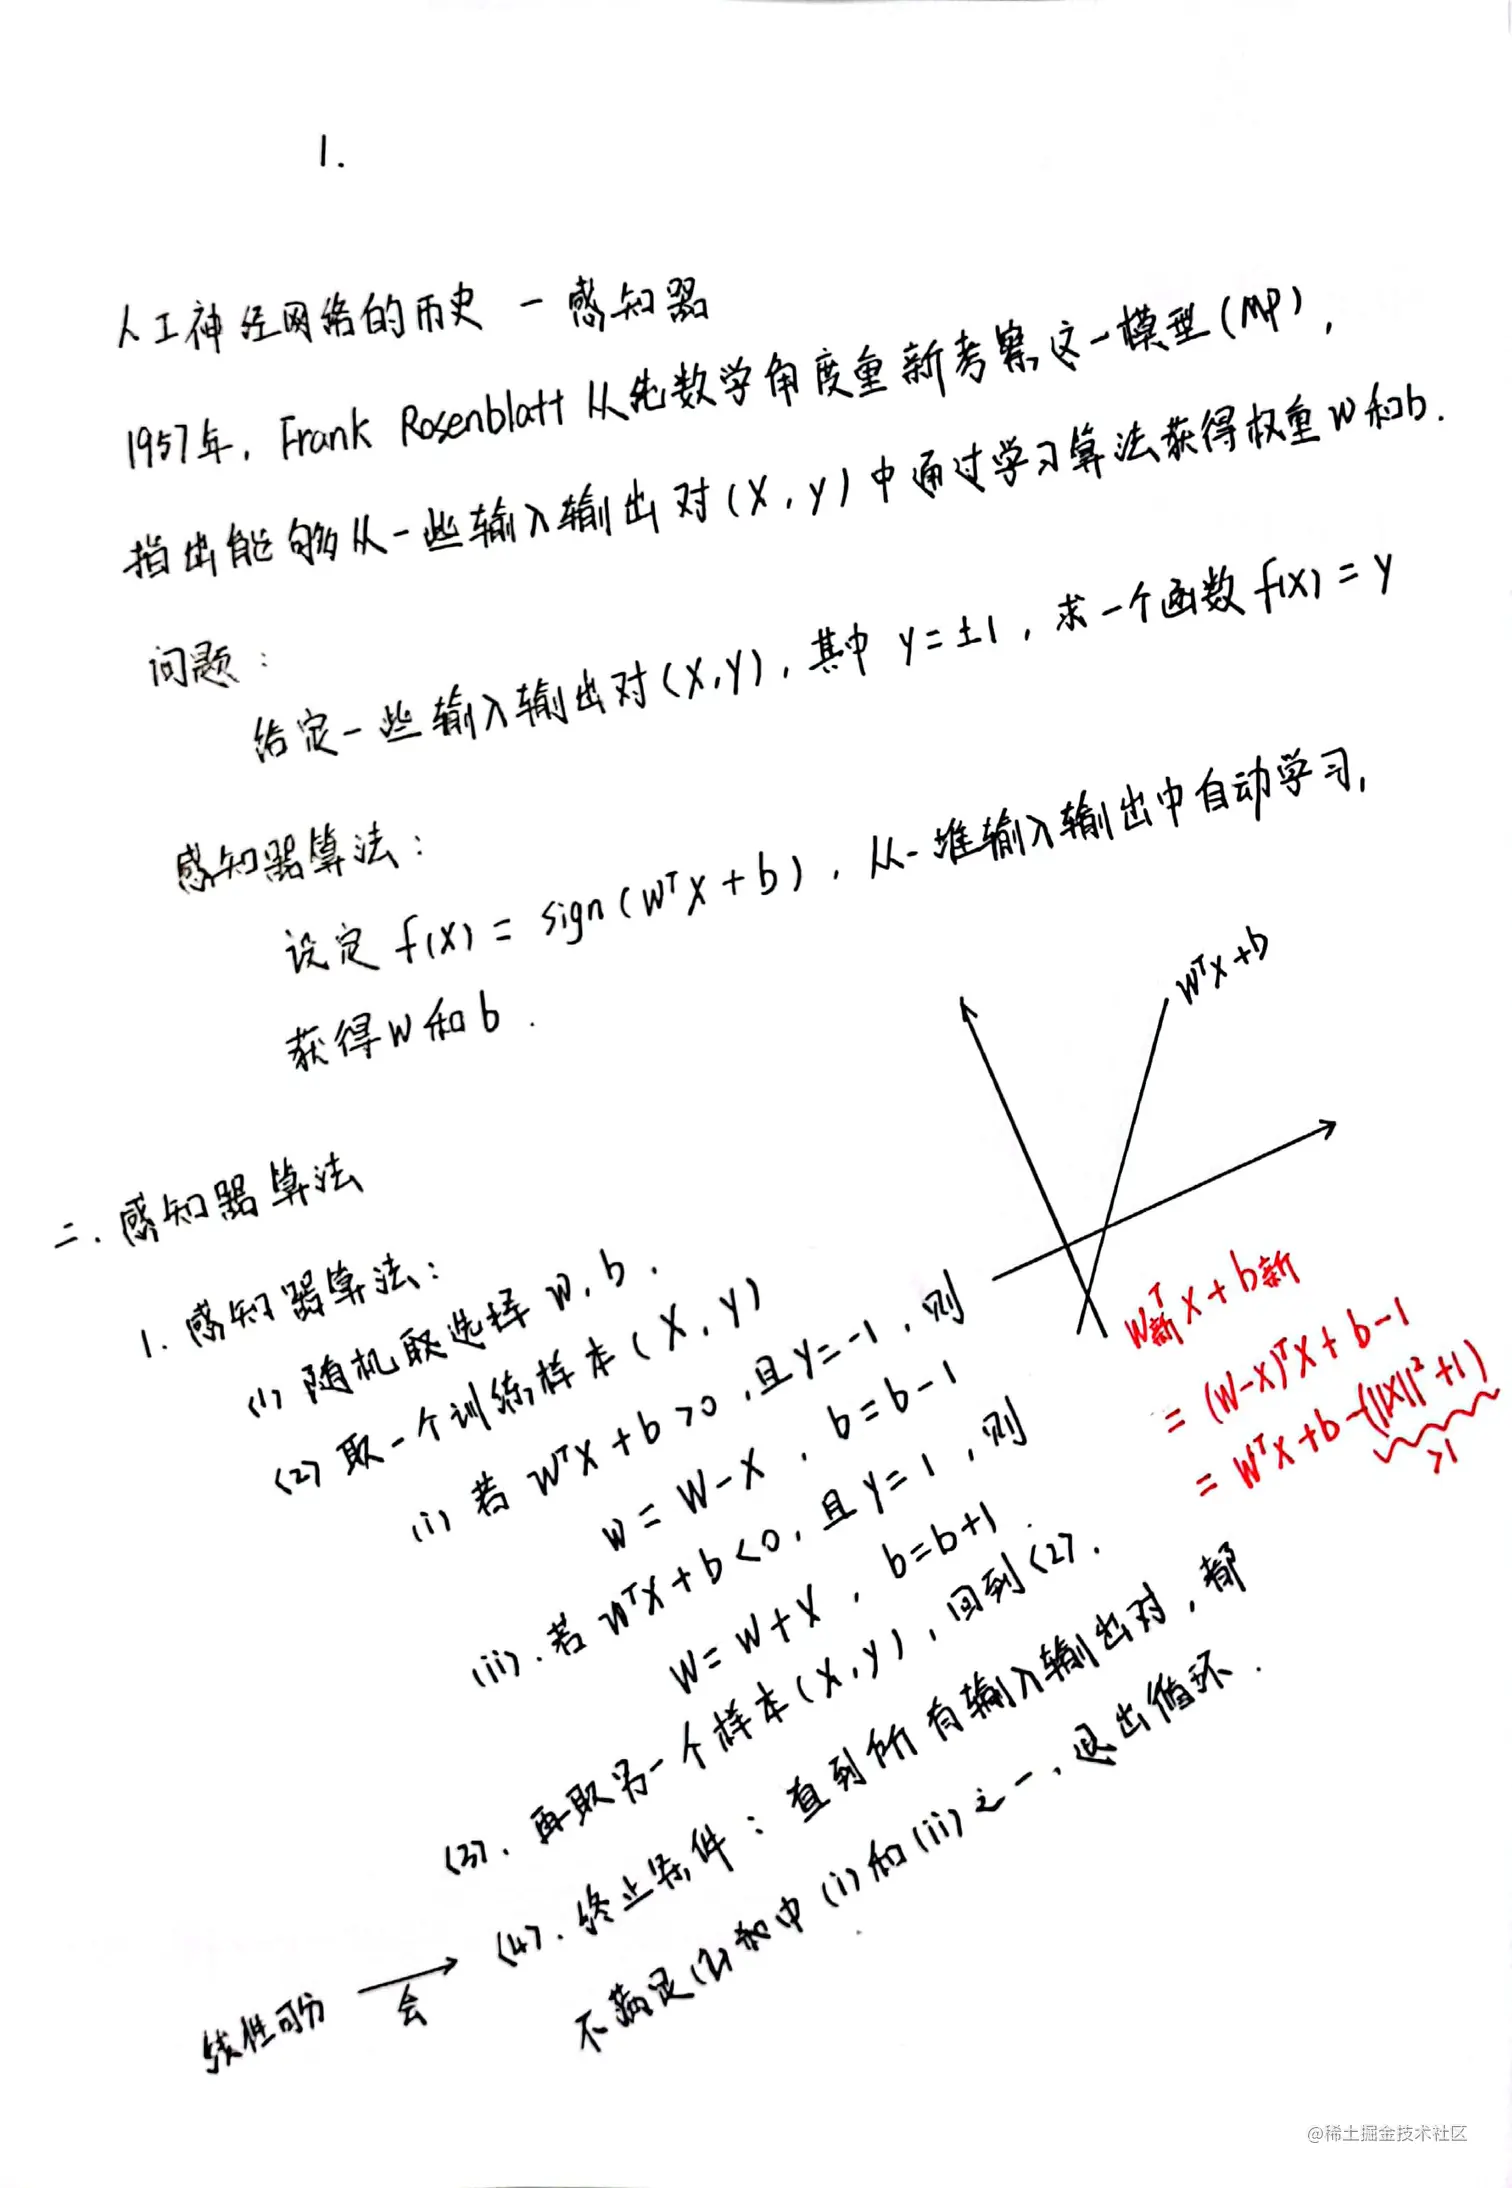 1.
人工神经网络的历史 - 感知器
1957年, Frank Rosenblatt 从纯数学角度重新考察这一模型(MP),
指出能够从一些输入输出对(X, y)中通过学习算法获得权重W和b.
问题:
给定一些输入输出对(X,Y), 其中 y=±1, 求一个函数 f(X) = y
感知器算法:
设定 f(X) = sign(WᵀX + b), 从一堆输入输出中自动学习,
获得W和b.
WᵀX+b
二. 感知器算法
1. 感知器算法:
(1) 随机选择 W, b.
(2) 取一个训练样本 (X, Y)
(i) 若 WᵀX + b > 0, 且 Y=-1, 则
W = W - X, b = b - 1
(ii). 若 WᵀX + b < 0, 且 y = 1, 则
W = W + X, b = b + 1.
(3). 再取另一个样本 (X, y), 回到(2).
(4). 终止条件: 直到所有输入输出对, 都
不满足(2)中(i)和(ii)之一, 退出循环.
线性可分 → 会
W新ᵀX + b新
= (W-X)ᵀX + b-1
= WᵀX + b - (||X||²+1)
>1
@稀土掘金技术社区